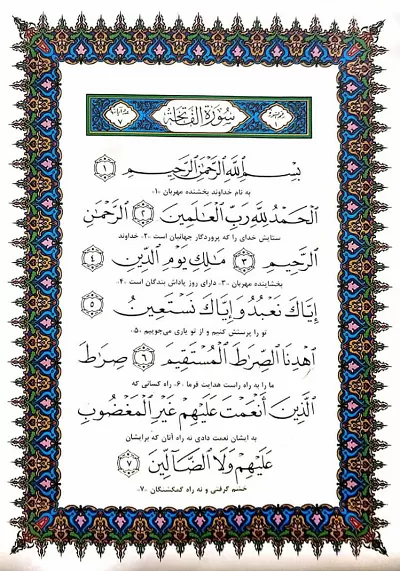 سورة الفاتحة
بسم الله الرحمن الرحيم ۱
به نام خداوند بخشنده مهربان ۱۰
الحمد لله رب العلمين ۲ الرحمن
ستایش خدای را که پروردگار جهانیان است ۲۰ خداوند
الرحيم ۳ ملك يوم الدين ۴
بخشاینده مهربان ۳۰ دارای روز پاداش بندگان است ۴۰
إياك نعبد وإياك نستعين ۵
تو را پرستش کنیم و از تو یاری می‌جوییم ۵۰
اهدنا الصرط المستقيم ۶ صرط
ما را به راه راست هدایت فرما ۶۰ راه کسانی که
الذين أنعمت عليهم غير المغضوب
به ایشان نعمت دادی نه راه آنان که برایشان
عليهم ولا الضآلين ۷
خشم گرفتی و نه راه گمگشتگان ۷۰